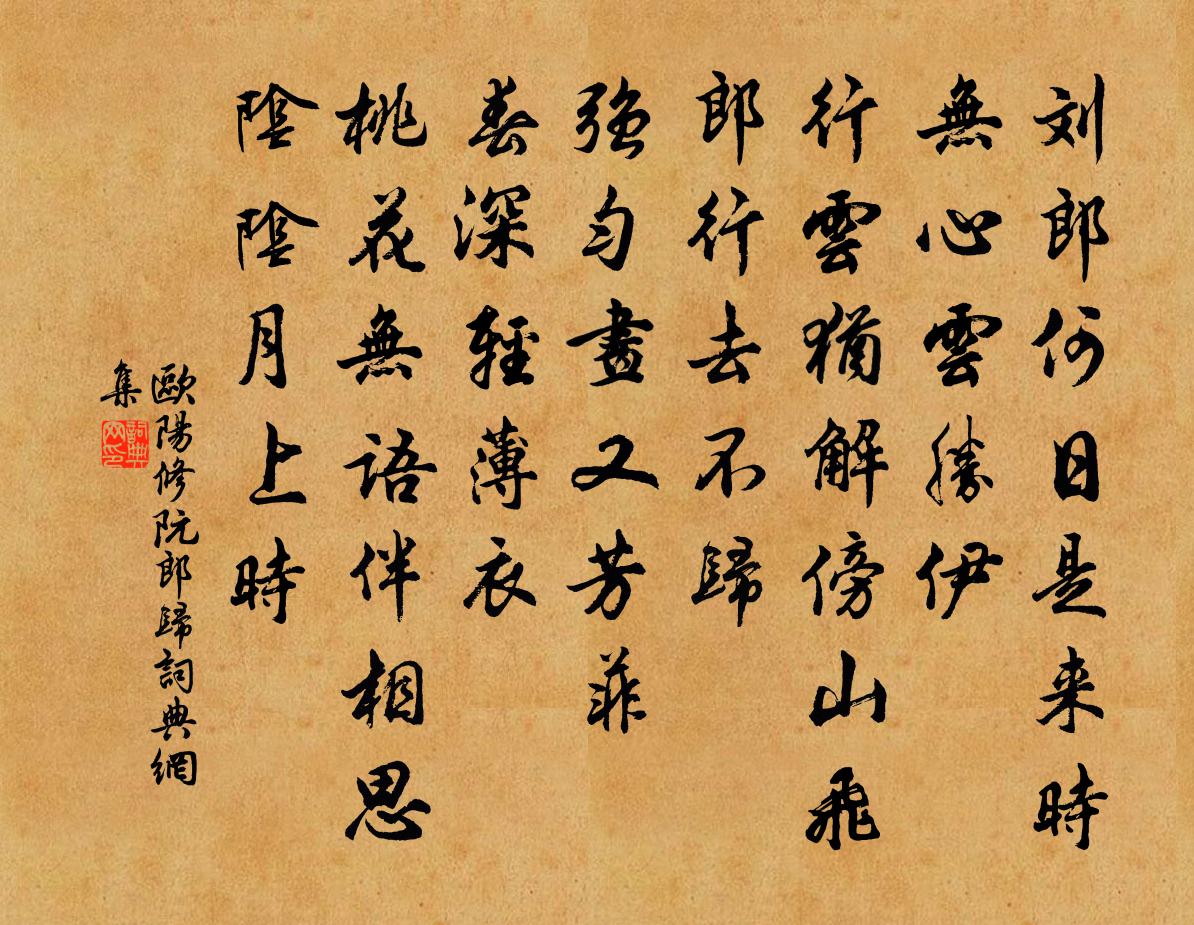 刘郎何日是来時
無心雲勝伊
行雲猶解傍山飛
郎行去不歸
強勻畫又芳菲
春深輕薄衣
桃花無語伴相思
陰陰月上時
歐陽修阮郎歸詞典網
集
詞典網印